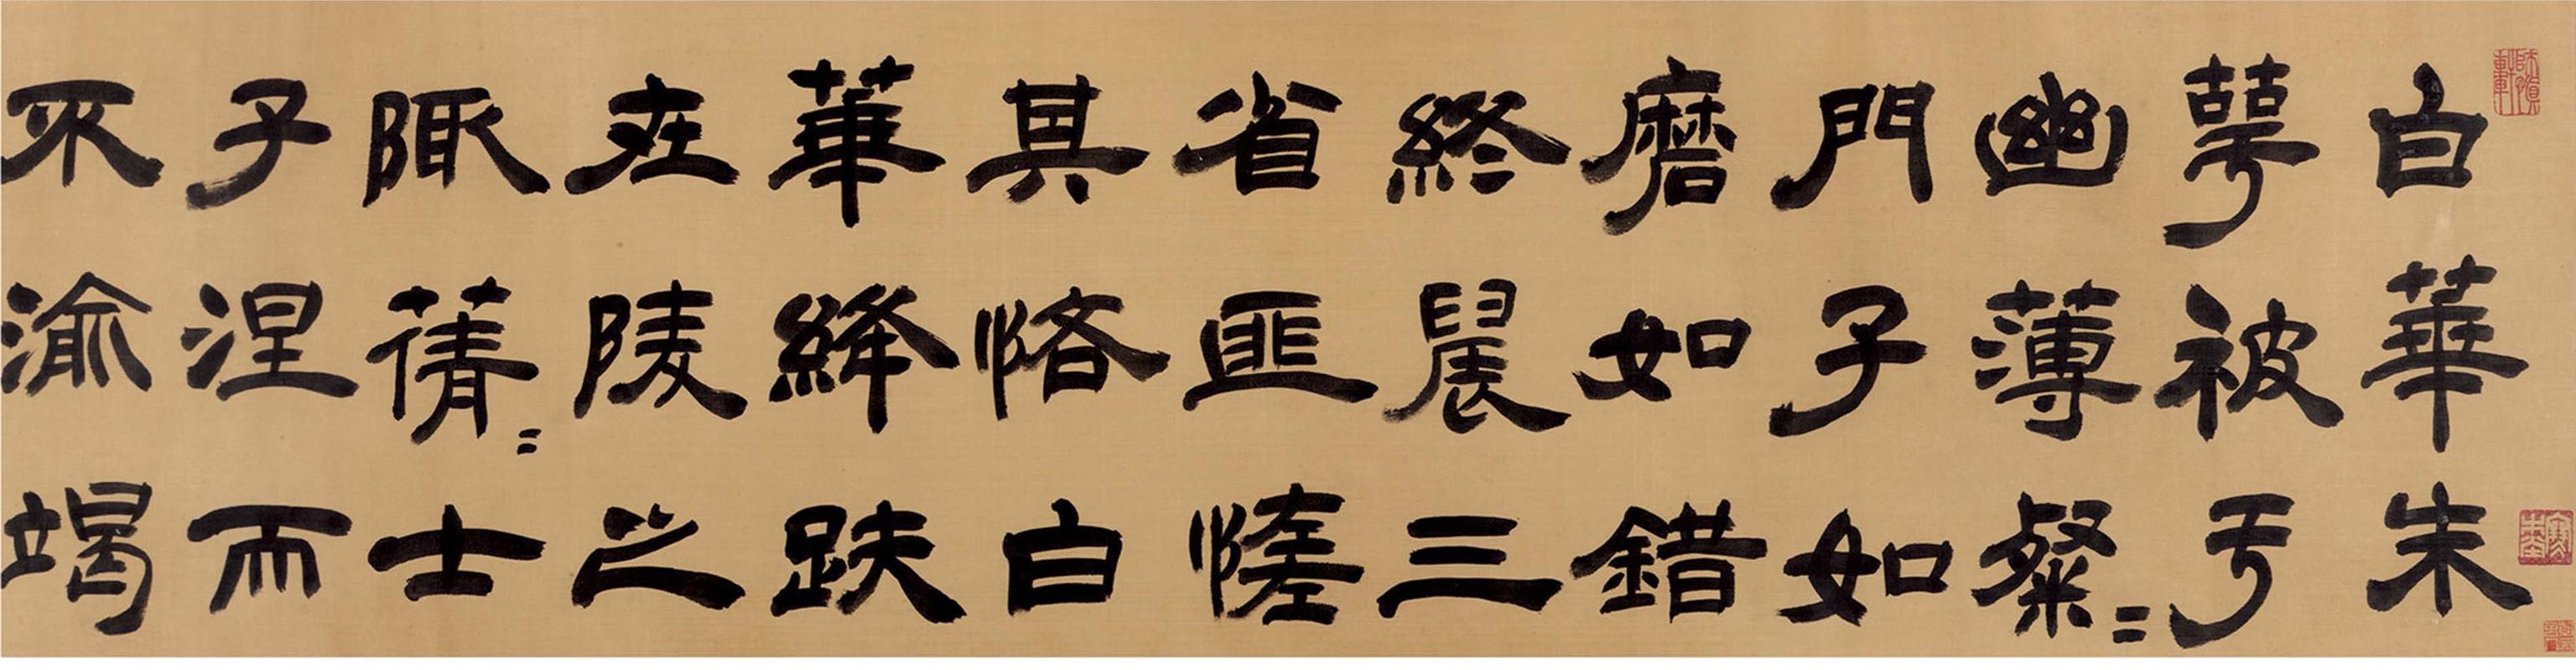 白華朱
萼被于
幽薄粲〻
門子如
磨如錯
終晨三
省匪惰
其恪白
華絳趺
在陵之
陬蒨〻士
子涅而
不渝竭